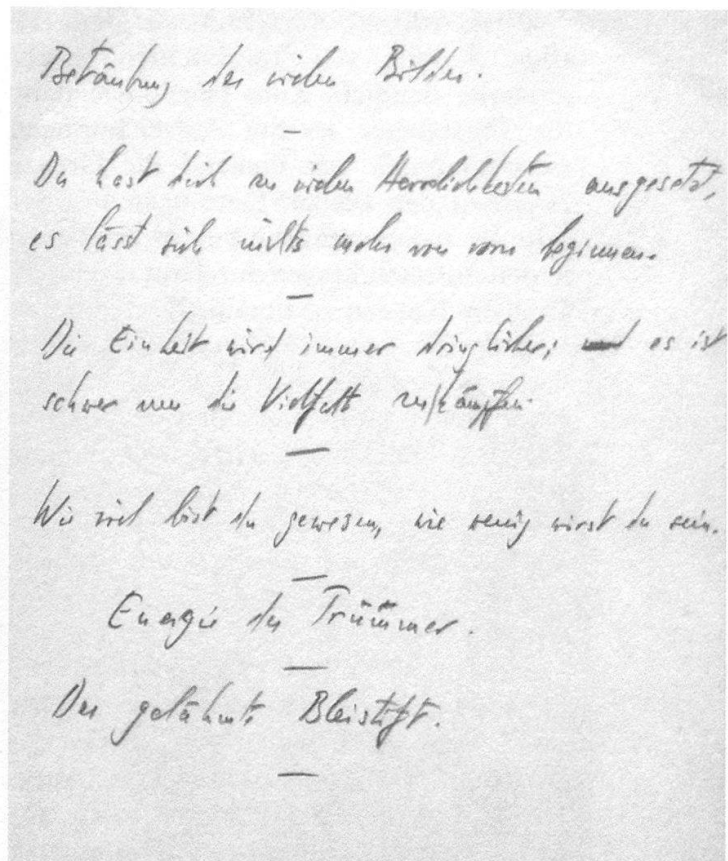 Betäubung der vielen Bilder.
—
Du hast dich zu vielen Herrlichkeiten ausgesetzt,
es lässt sich nichts mehr von vorn beginnen.
—
Die Einheit wird immer dringlicher; es ist
schwer um die Vielfalt zu kämpfen.
—
Wie viel bist du gewesen, wie wenig wirst du sein.
—
Energie der Trümmer.
—
Der gelähmte Bleistift.
—